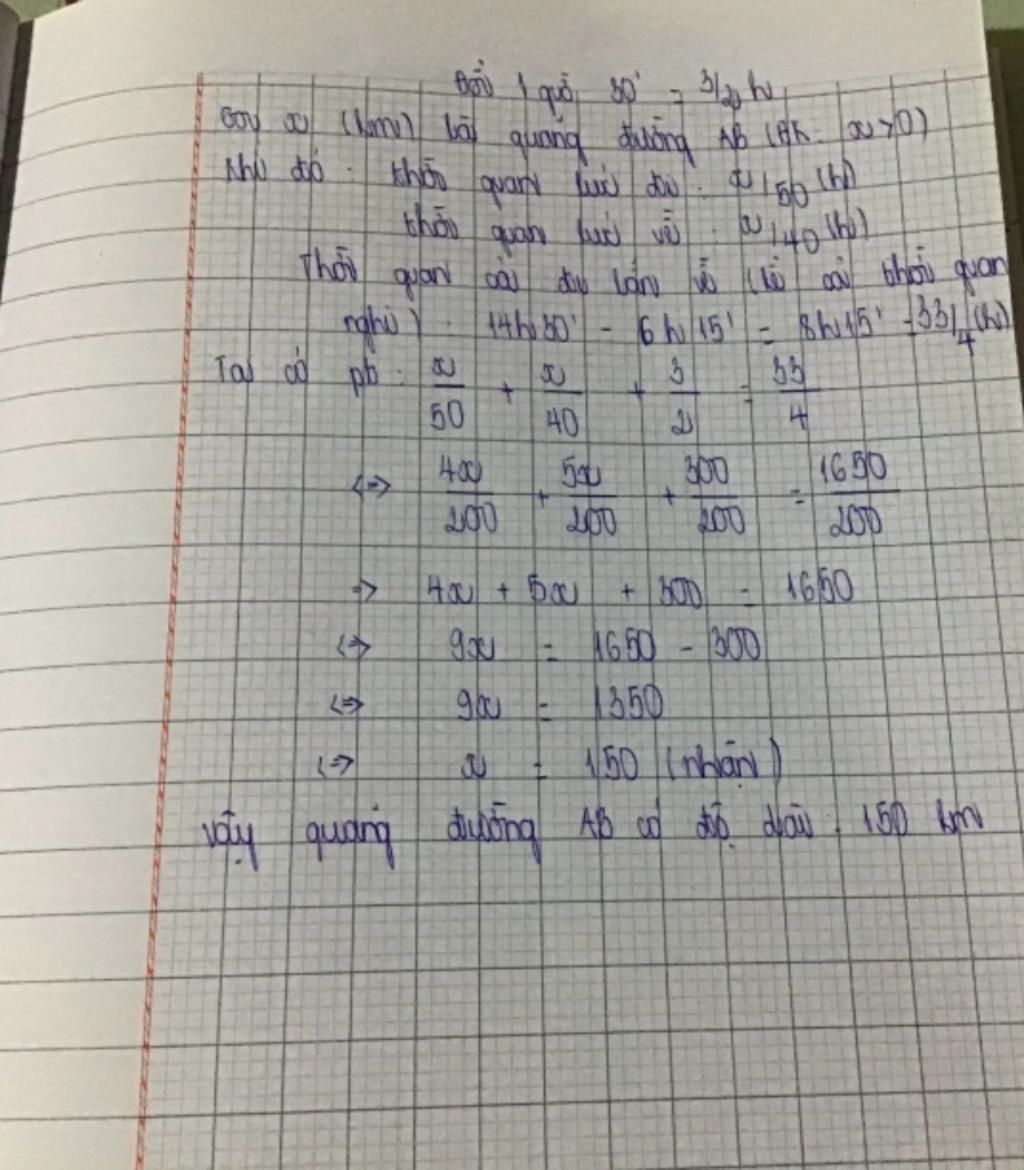 Đổi 1 giờ 30' = 3/2 h
Gọi x (km) là quãng đường AB (ĐK: x > 0)
Khi đó: thời gian lúc đi: x/50 (h)
thời gian lúc về: x/40 (h)
Thời gian cả đi lẫn về (kể cả thời gian
nghỉ): 14h30' - 6h15' = 8h15' = 33/4 (h)
Ta có pt: x/50 + x/40 + 3/2 = 33/4
<=> 4x/200 + 5x/200 + 300/200 = 1650/200
=> 4x + 5x + 300 = 1650
<=> 9x = 1650 - 300
<=> 9x = 1350
<=> x = 150 (nhận)
Vậy quãng đường AB có độ dài: 150 km